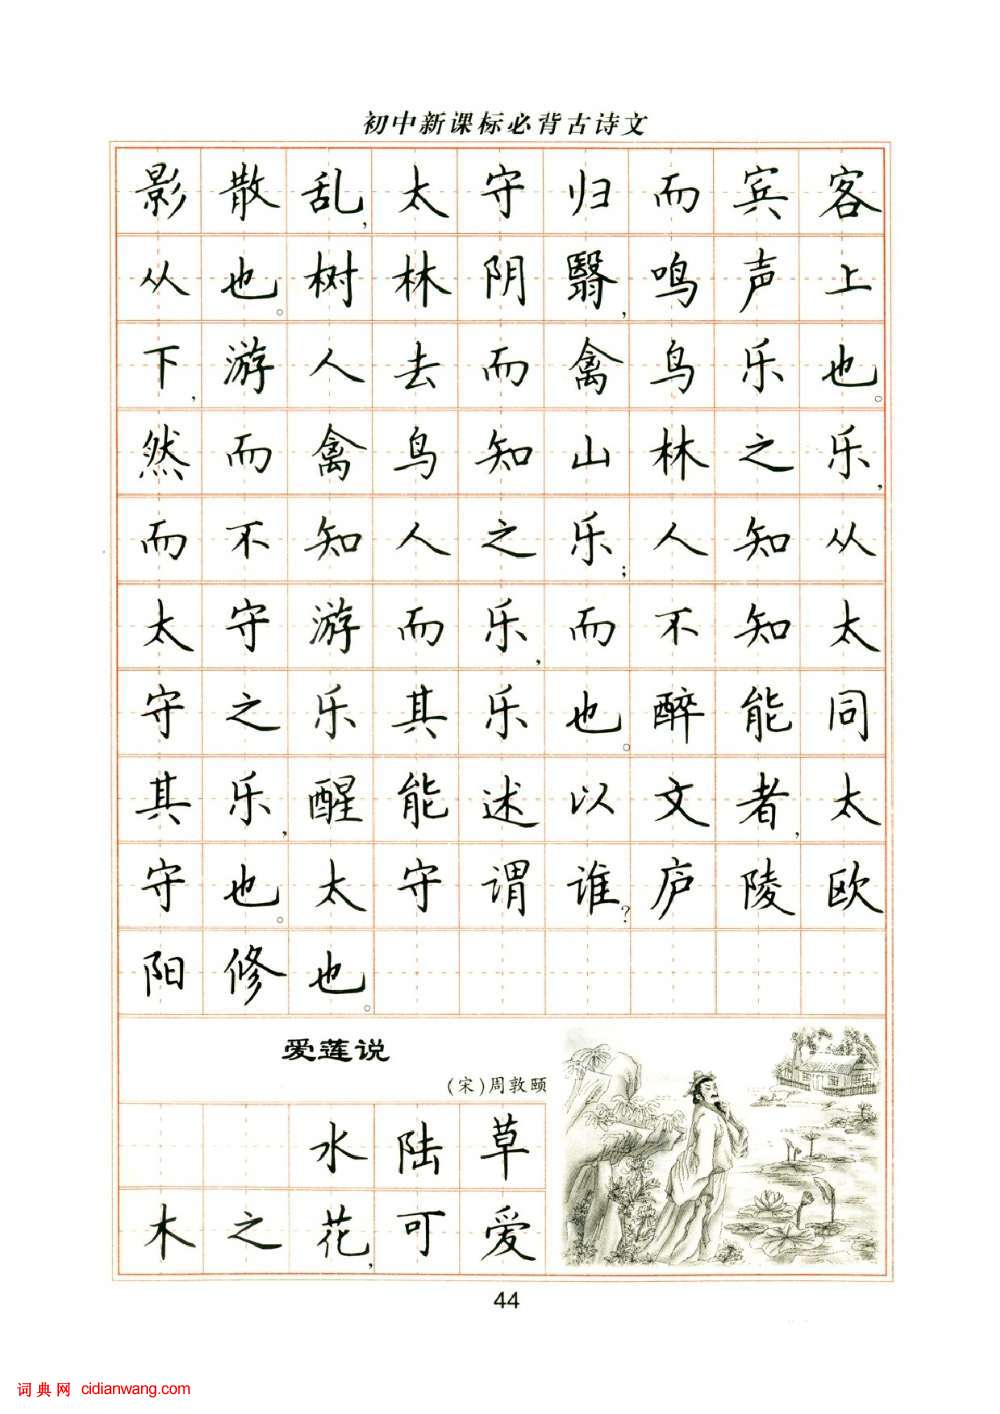 初中新课标必背古诗文
影散乱,太守归而宾客
从也。树林阴翳,鸣声上
下,游人去而禽鸟乐也。
然而禽鸟知山林之乐,
而不知人之乐;人知从
太守游而乐,而不知太
守之乐其乐也。醉能同
其乐,醒能述以文者,太
守也。太守谓谁?庐陵欧
阳修也。
爱莲说
(宋)周敦颐
水陆草
木之花,可爱
44
词典网 cidianwang.com